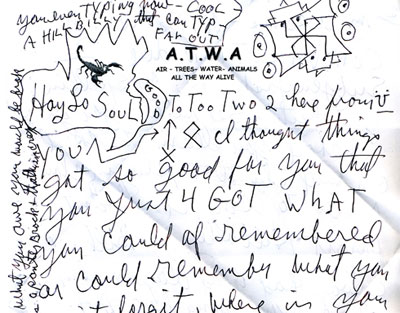 you even TYPING now - COOL
A HILL BILLY that can TYP
FAR OUT
A.T.W.A
AIR - TREES - WATER - ANIMALS
ALL THE WAY ALIVE
Hay So Soul To Too Two 2 here from
YOU I thought things
got so good for you that
you Just 4 GOT WHAT
you could of remembered
or could remember what you
forgit, where in your
what you owe you would be